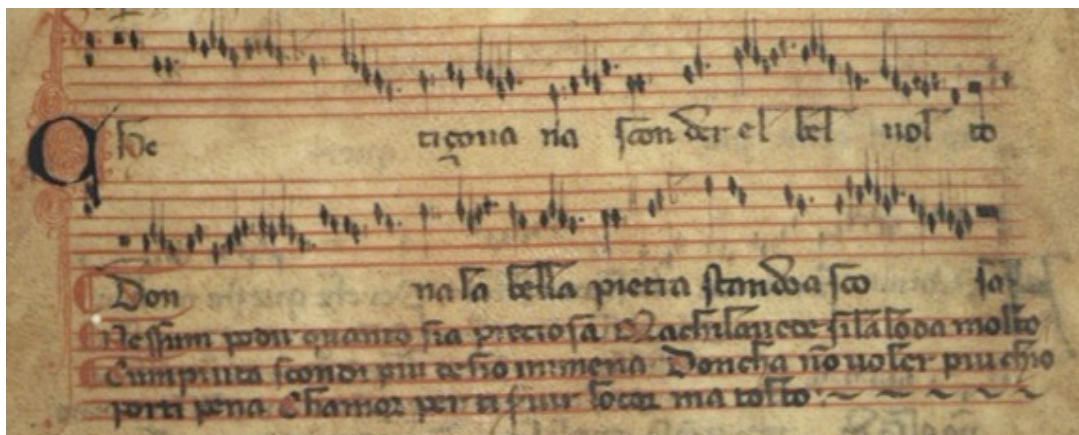 Qhe tiçoua na scon der el bel uol to
Don na la bella pietra standoa sco sa
Nessun podu quanto sia preciosa Machilauede silaloda molto
Cumpiuta scondi piu desio mimena Doncha no uoler piu chio
porti pena Chamor per ti seruir locor ma tolto